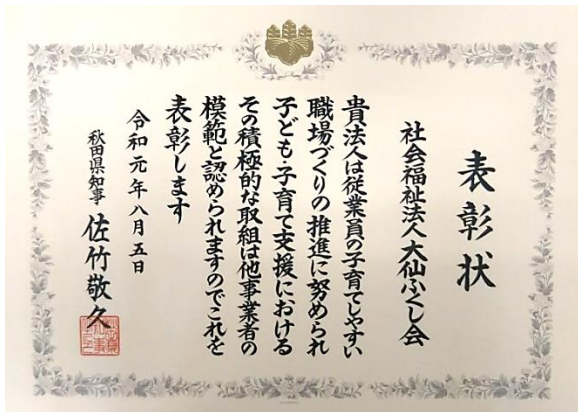 表彰状
社会福祉法人大仙ふくし会
貴法人は従業員の子育てしやすい
職場づくりの推進に努められ
子ども・子育て支援における
その積極的な取組は他事業者の
模範と認められますのでこれを
表彰します
令和元年八月五日
秋田県知事 佐竹敬久